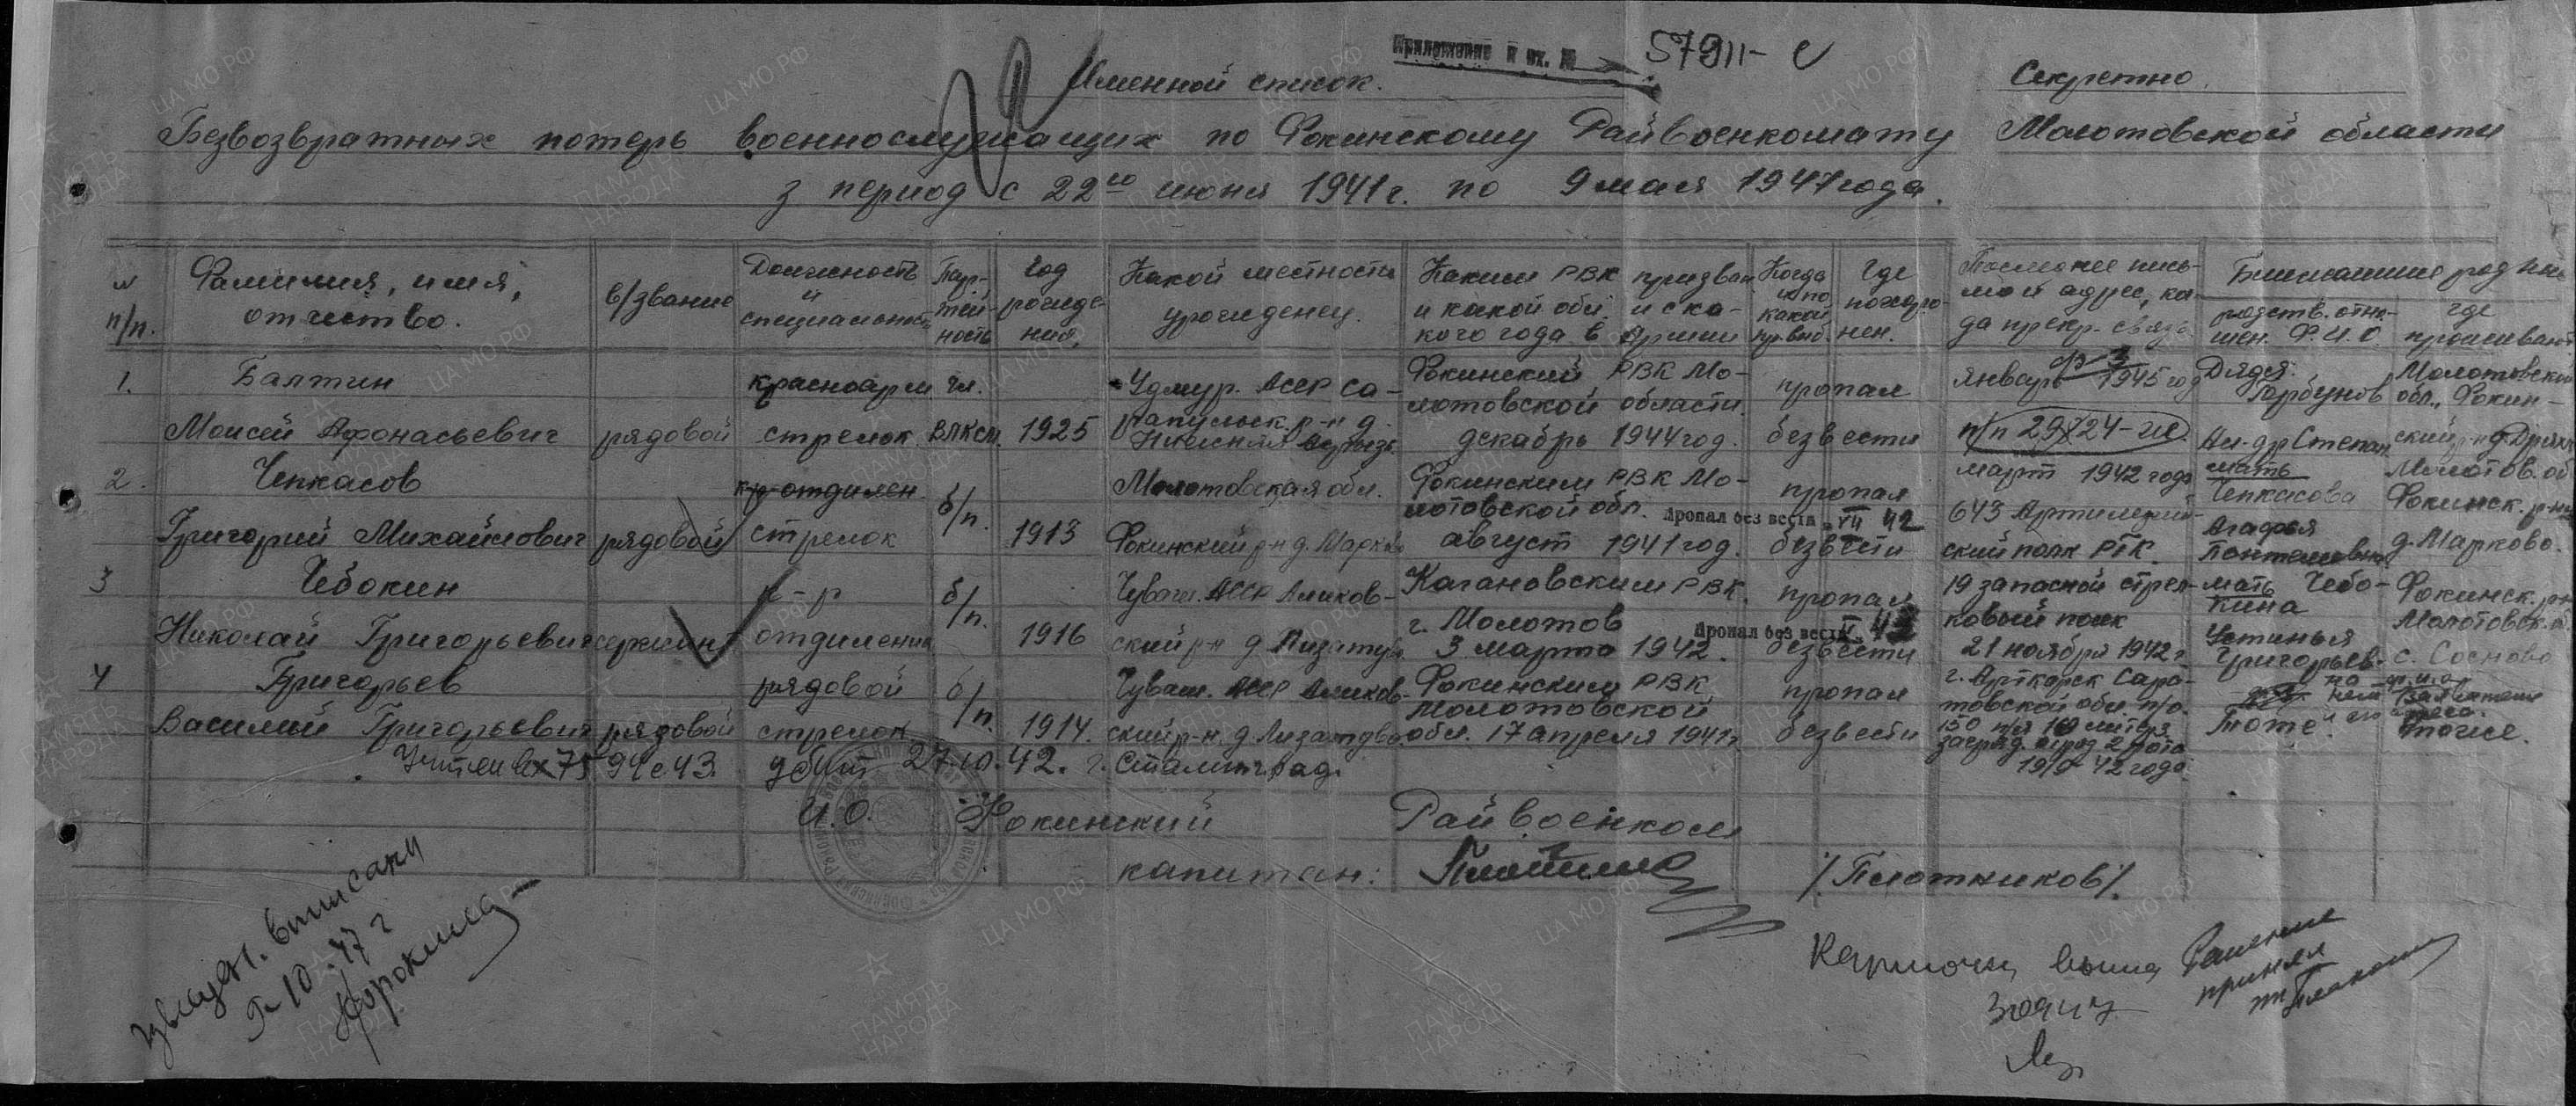 Приложение к вх. № 57911-с
Именной список.
Секретно
Безвозвратных потерь военнослужащих по Фокинскому Райвоенкомату Молотовской области
з период с 22го июня 1941г. по 9 мая 1947 года.
№ п/п.
Фамилия, имя, отчество.
в/звание
Должность и специальность
Партийность
Год рождения,
Какой местности уроженец.
Каким РВК призван и какой обл. и с какого года в Армии
Когда и по какой пр. выб.
Где похоронен.
Последнее письмо и адрес, когда прекр. связь
Ближайшие род
родств. отношен. Ф.И.О.
где проживают
1. Балтин
Моисей Афонасьевич
рядовой
красноарм
стрелок
чл.
ВЛКСМ.
1925
Удмур. АССР Са-
рапульск. р-н д.
Фокинский РВК Мо-
лотовской области.
декабрь 1944 год.
пропал
безвести
январь 1945 год
п/п 29824-
Дядя:
Горбунов
Ал-др Степан
Молотовский
обл., Фокин-
ский р-н д.
2. Чепкасов
Григорий Михайлович
рядовой
к-р отдилен
стрелок
б/п.
1913
Молотовская обл.
Фокинский р-н д. Марково
Фокинским РВК Мо-
лотовской обл.
август 1941 год.
Пропал без вести VII 42
пропал
безвести
март 1942 года
643 Артилерий-
ский полк РГК
мать
Чепкасова
Агафья
Пантелеевна
Молотов. об
Фокинск. р-н
д. Марково.
3 Чебокин
Николай Григорьевич
сержант
к-р
отдиления
б/п.
1916
Чуваш. АССР Аликов-
ский р-н д.
Кагановским РВК.
г. Молотов
3 марта 1942.
Пропал без вести
пропал
безвести
19 запасной стрел-
ковый полк
21 ноября 1942 г
мать Чебо-
кина
Устинья
Григорьев-
на
Фокинск. р-н
Молотовск. о
с. Сосново
4 Григорьев
Василий Григорьевич
рядовой
рядовой
стрелок.
б/п.
1914.
Чуваш. АССР Аликов-
ский р-н. д.
Фокинским РВК
Молотовской
обл. 17 апреля 1941 г.
пропал
безвести
г. Арткарск Сара-
товской обл. п/о.
150 п/я 10 литер
2 рота
19/9 42 года
тоже.
Учтен вх 75 94с 43. убит 27.10.42. г. Сталинград.
И.О. Фокинский Райвоенком
капитан: /Плотников/.
Извещен. выписаны
10.47 г
Сорокина
Карточки